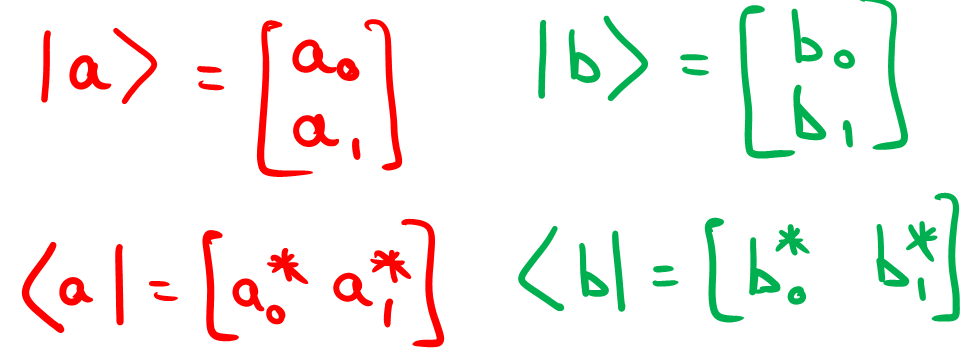 |a> = [a₀ a₁] |b> = [b₀ b₁]
<a| = [a₀* a₁*] <b| = [b₀* b₁*]